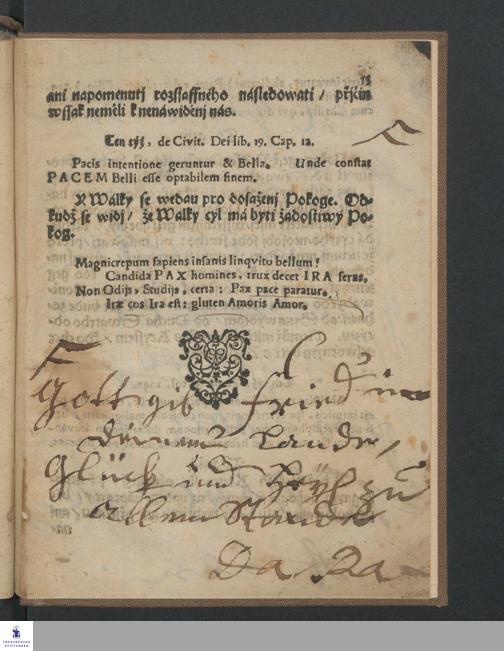 13
ani napomenutj rozssaffného následowati / přjčin
wssak neměli k nenáwiděnj nás.
Ten týž, de Civit. Dei lib. 19. Cap. 12.
Pacis intentione geruntur & Bella. Unde constat
PACEM Belli esse optabilem finem.
Y Walky se wedau pro dosaženj Pokoge. Od-
kudž se widj / že Walky cyl má byti žádostiwý Po-
kog.
Magnicrepum sapiens insanis linqvito bellum!
Candida PAX homines, trux decet IRA feras,
Non Odijs, Studijs, certa: Pax pace paratur.
Iræ cos Ira est: gluten Amoris Amor.
Gott gib Fried in
deinem Lande,
Glück und Heyl zu
allem Stande